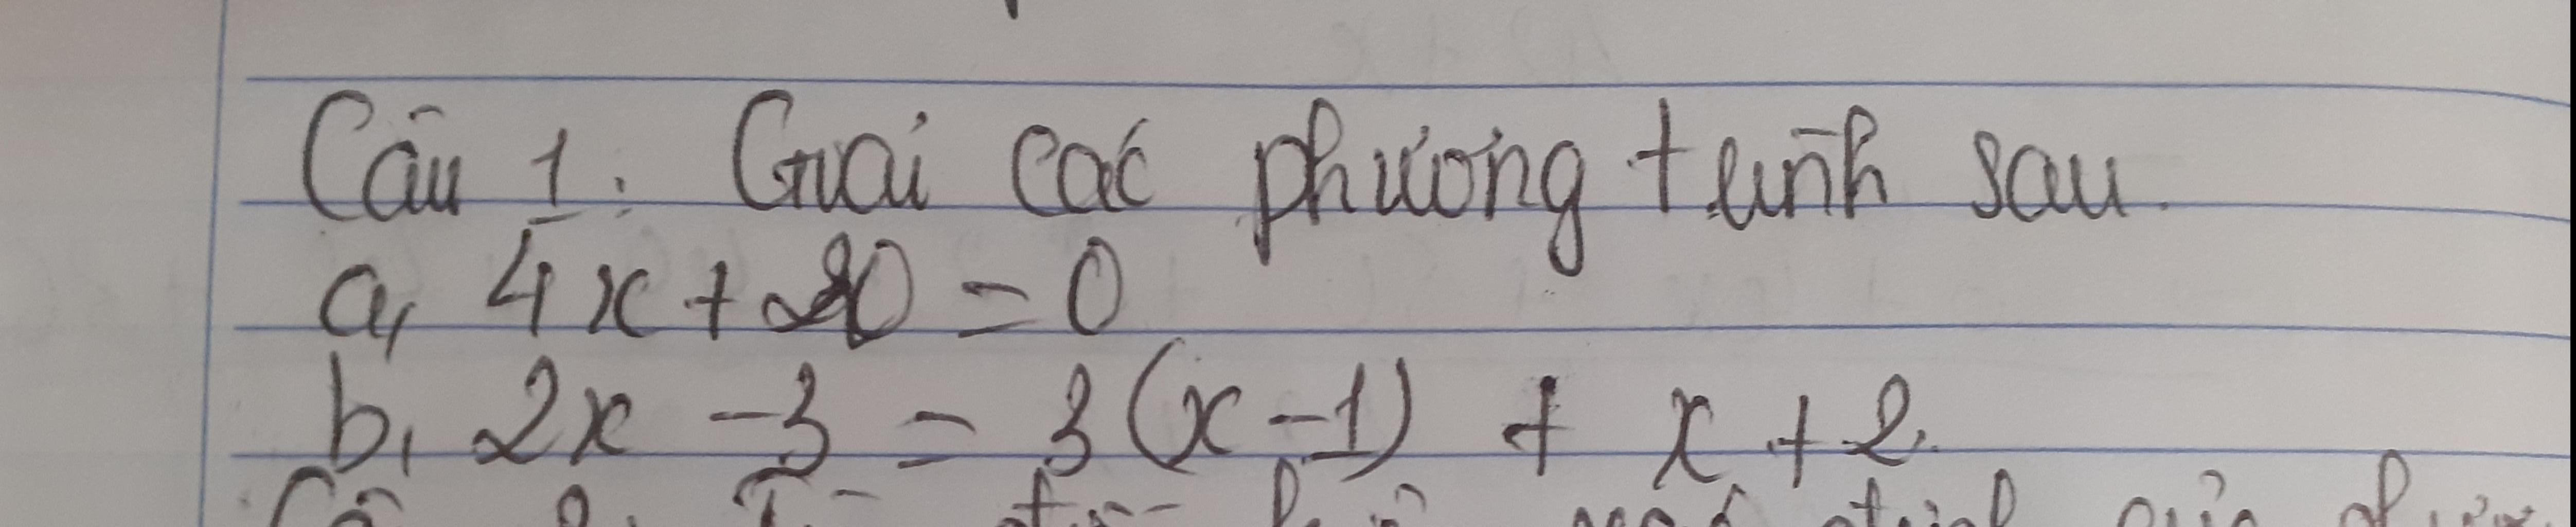 Câu 1: Giải các phương trình sau.
a, 4x + 20 = 0
b, 2x - 3 = 3(x - 1) + x + 2.